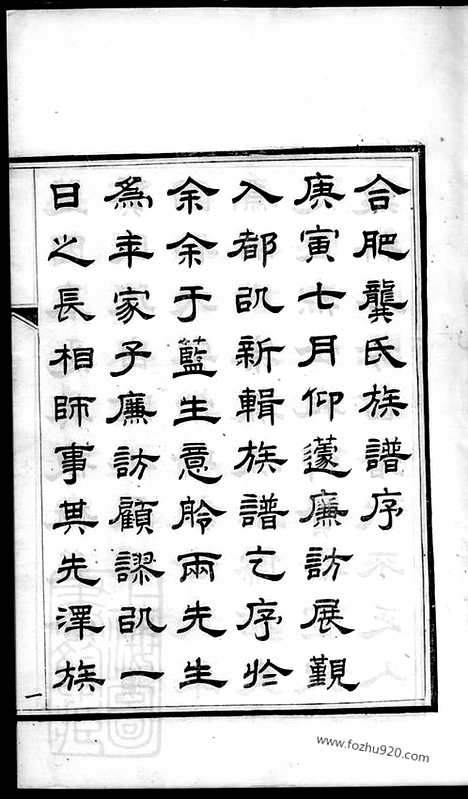 合肥龔氏族譜序
庚寅七月仰蘧廉訪展覲
入都㕥新輯族譜乞序於
余余于藍生意舲兩先生
為年家子廉訪顧謬㕥一
日之長相師事其先澤族
一
www.fozhu920.com